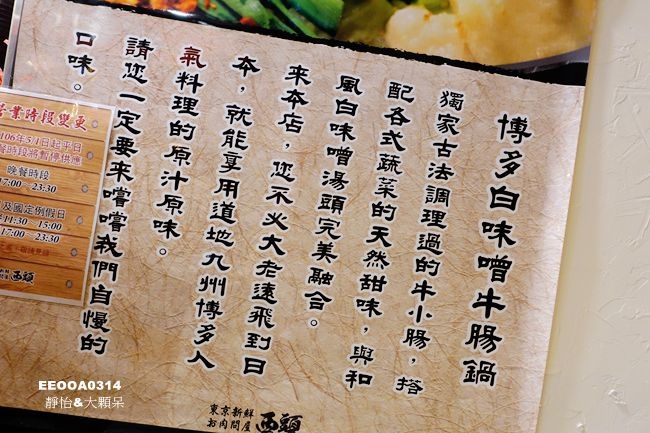 博多白味噌牛腸鍋
獨家古法調理過的牛小腸，搭
配各式蔬菜的天然甜味，與和
風白味噌湯頭完美融合。
來本店，您不必大老遠飛到日
本，就能享用道地九州博多人
氣料理的原汁原味。
請您一定要來嚐嚐我們自慢的
口味。
業時段變更
106年5/1日起平日
餐時段將暫停供應
晚餐時段
17:00～23:30
及國定例假日
11:30～15:00
17:00～23:30
西頭
東京新鮮
お肉問屋
西頭
EEOOA0314
靜怡&大顆呆